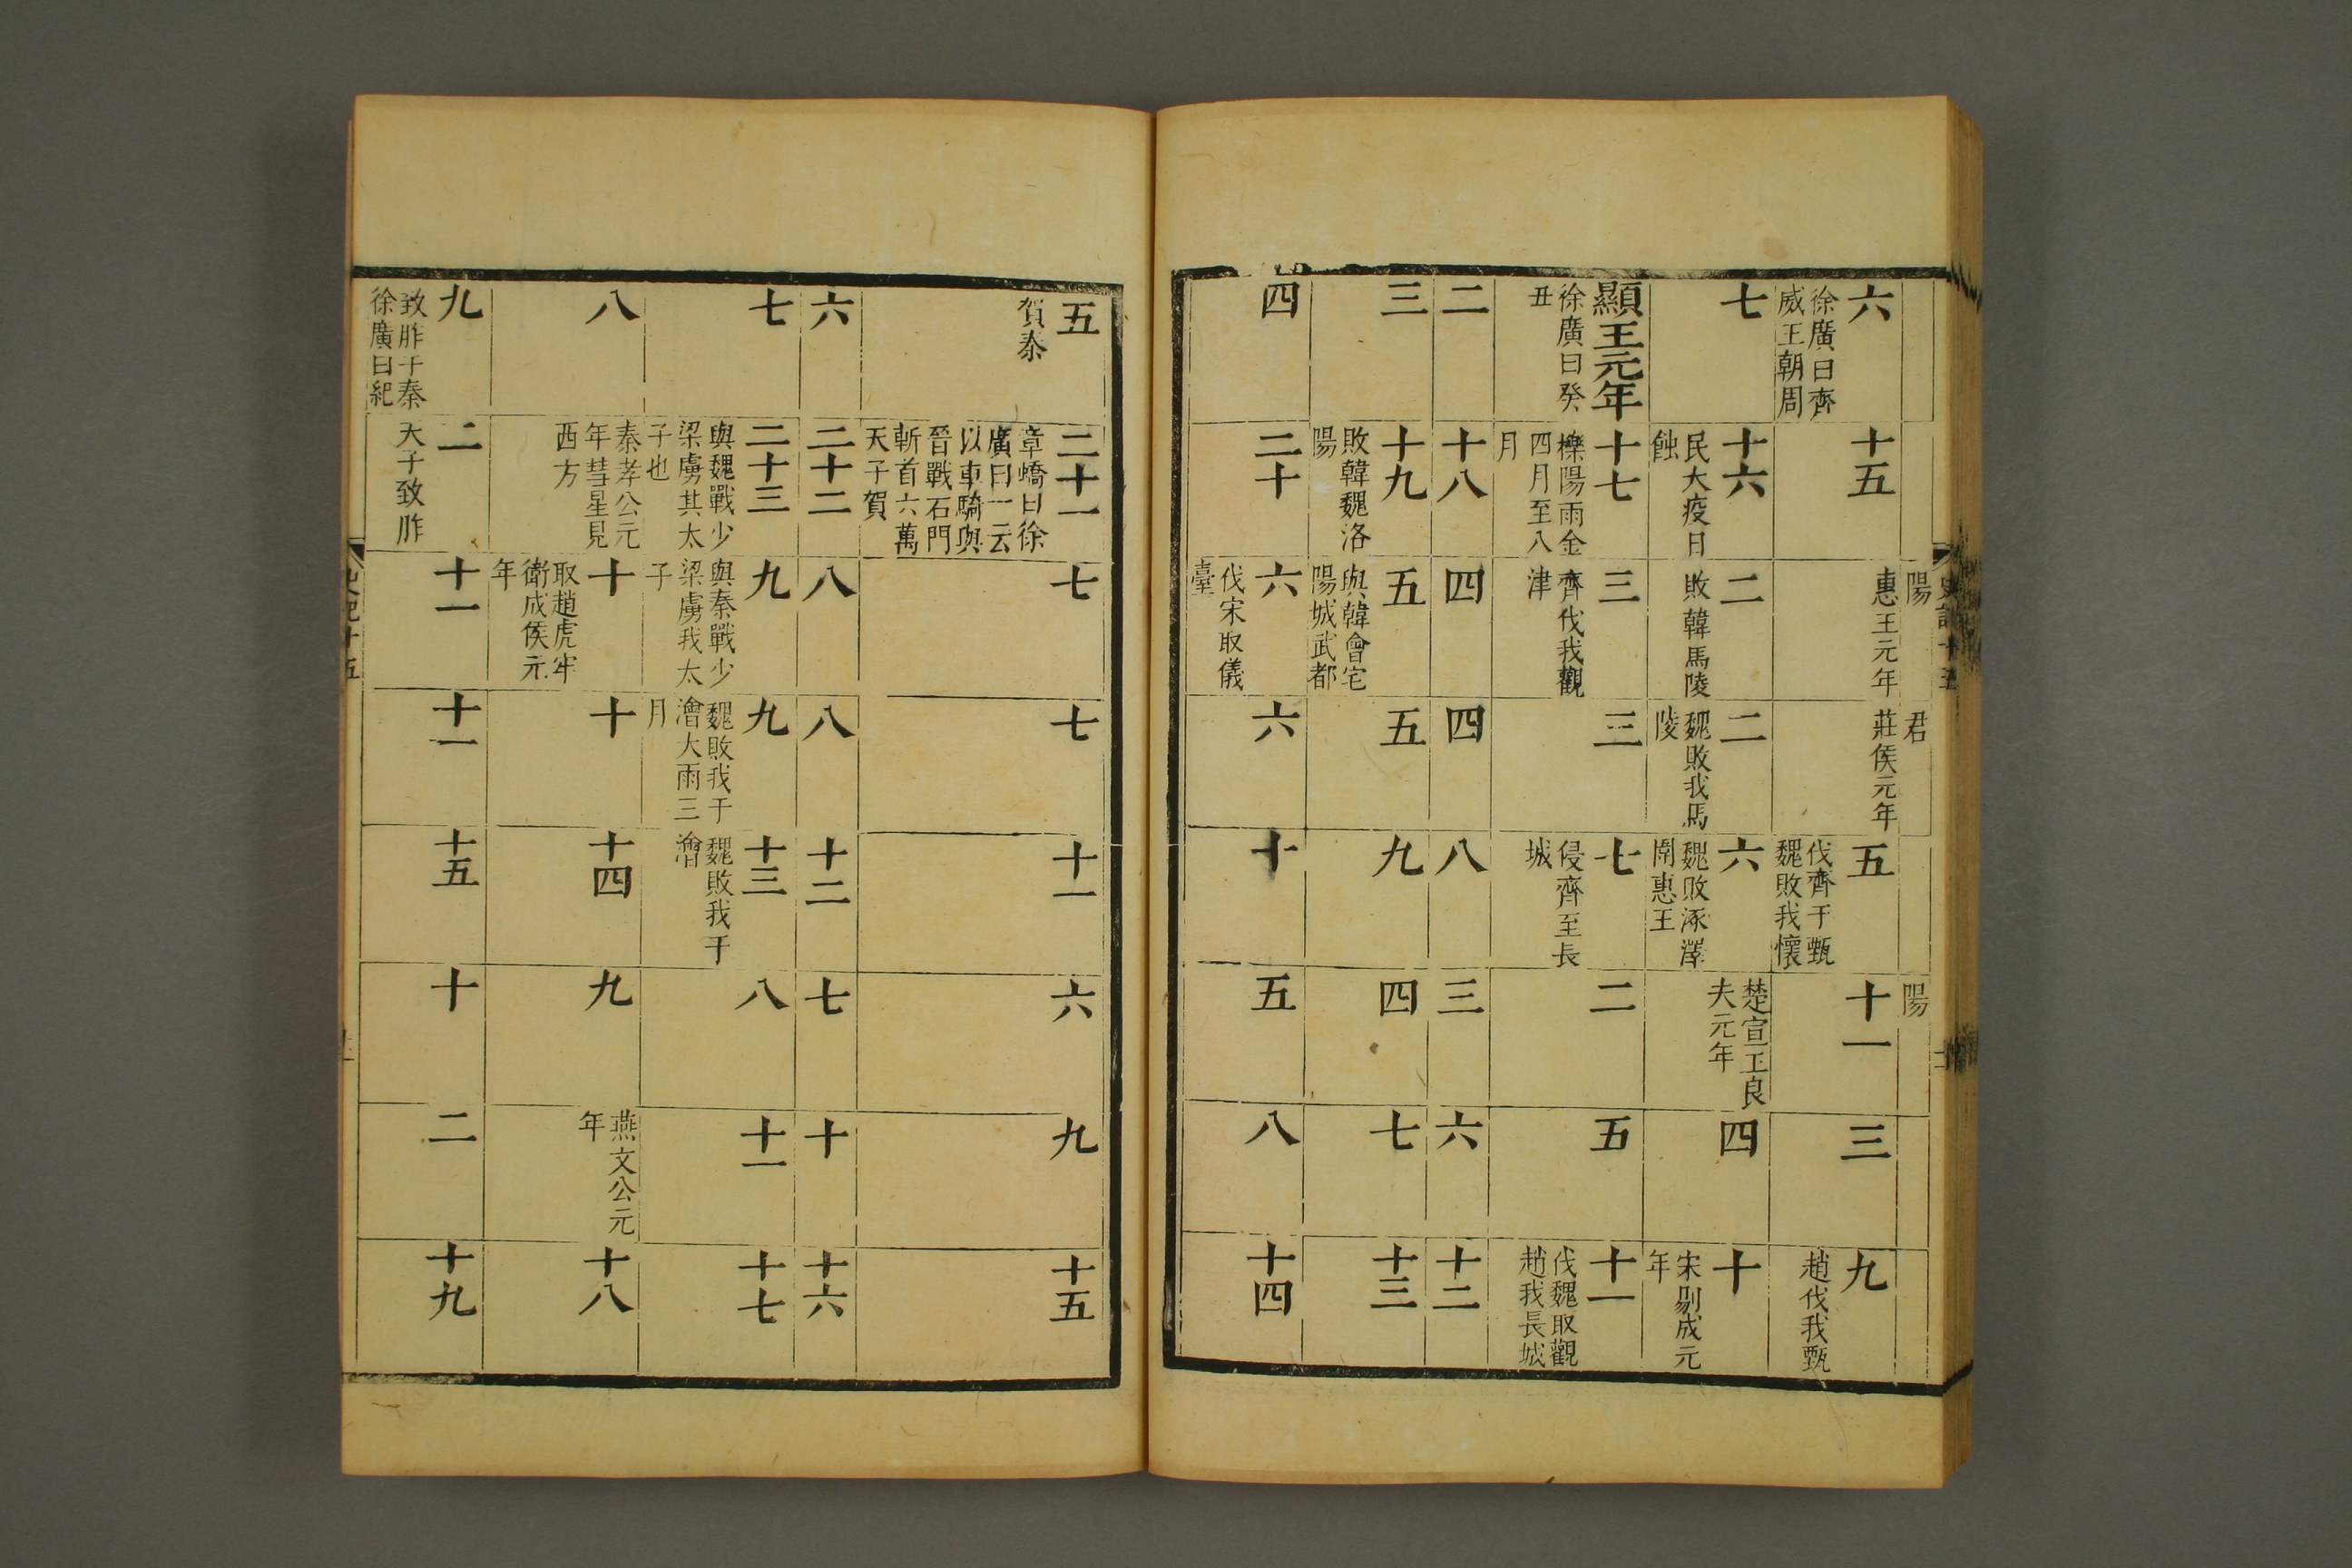 陽
君
陽
六
徐廣曰齊
威王朝周
十五
惠王元年
莊侯元年
五
伐齊于甄
魏敗我懷
十一
三
九
趙伐我甄
七
十六
民大疫日
蝕
二
敗韓馬陵
二
魏敗我馬
陵
六
魏敗涿澤
圍惠王
楚宣王良
夫元年
四
十
宋剔成元
年
顯王元年
徐廣曰癸
丑
十七
櫟陽雨金
四月至八
月
三
齊伐我觀
津
三
七
侵齊至長
城
二
五
十一
伐魏取觀
趙我長城
二
十八
四
四
八
三
六
十二
三
十九
敗韓魏洛
陽
五
與韓會宅
陽城武都
五
九
四
七
十三
四
二十
六
伐宋取儀
臺
六
十
五
八
十四
五
賀秦
二十一
章蟜曰徐
廣曰一云
以車騎與
晉戰石門
斬首六萬
天子賀
七
七
十一
六
九
十五
六
二十二
八
八
十二
七
十
十六
七
二十三
與魏戰少
梁虜其太
子也
九
與秦戰少
梁虜我太
子
九
魏敗我于
澮大雨三
月
十三
魏敗我于
澮
八
十一
十七
八
秦孝公元
年彗星見
西方
十
取趙虎牢
衛成侯元
年
十
十四
九
燕文公元
年
十八
九
致胙于秦
徐廣曰紀
二
天子致胙
十一
十一
十五
十
二
十九
史記十五